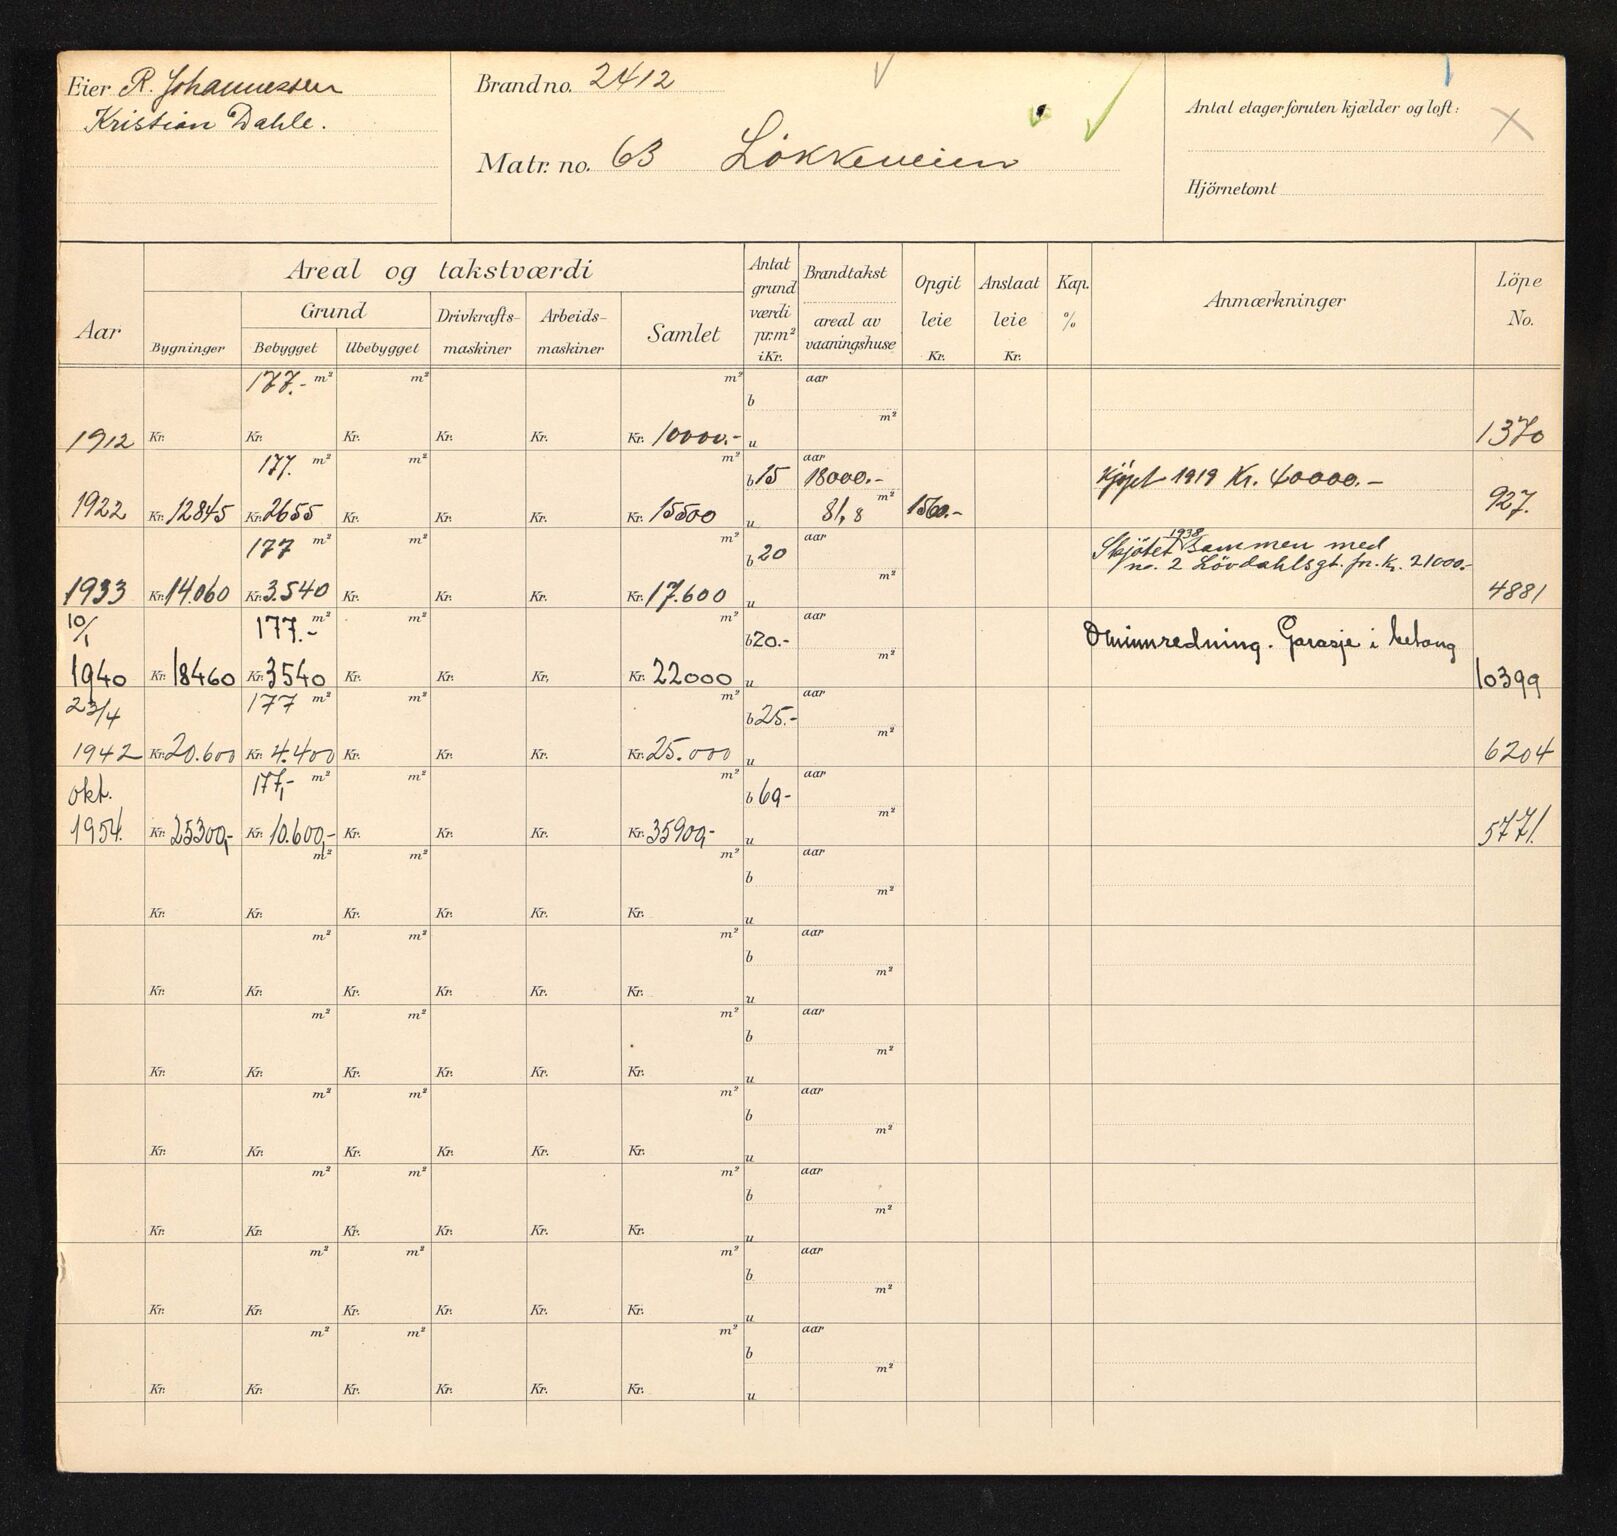 Eier R. Johannessen
Kristian Dahle.
Brand no. 2412
Matr. no. 63 Lökkeveien
Antal etager foruten kjælder og loft:
Hjörnetomt
Aar
Areal og takstværdi
Grund
Bygninger
Bebygget
Ubebygget
Drivkrafts-
maskiner
Arbeids-
maskiner
Samlet
Antat
grund
værdi
pr.m²
i Kr.
Brandtakst
areal av
vaaningshuse
Opgit
leie
Kr.
Anslaat
leie
Kr.
Kap.
%
Anmærkninger
Löpe
No.
177.- m² m² m² b aar
m²
1912 Kr. Kr. Kr. Kr. Kr. Kr. 10000.- u 1370
177. m² m² m² b 15 aar 18000.- Kjöpt 1919 Kr. 40000.-
1922 Kr. 12845 Kr. 2655 Kr. Kr. Kr. Kr. 15500 u 81,8 m² 1560.- 927.
177 m² m² m² b 20 aar Skjötet 1938 sammen med
m² no. 2 Lövdahlsgt. for Kr. 21000.-
1933 Kr. 14.060 Kr. 3.540 Kr. Kr. Kr. Kr. 17.600 u 4881
10/1 177.- m² m² m² b 20.- aar Ominnredning. Garasje i betong
m²
1940 Kr. 18460 Kr. 3540 Kr. Kr. Kr. Kr. 22000 u 10399
23/4 177 m² m² m² b 25.- aar
m²
1942 Kr. 20.600 Kr. 4.400 Kr. Kr. Kr. Kr. 25.000 u 6204
okt. 177,- m² m² m² b 60- aar
m²
1954. Kr. 25300,- Kr. 10.600,- Kr. Kr. Kr. Kr. 35900,- u 5771.
m² m² m² b aar
m²
Kr. Kr. Kr. Kr. Kr. Kr. u
m² m² m² b aar
m²
Kr. Kr. Kr. Kr. Kr. Kr. u
m² m² m² b aar
m²
Kr. Kr. Kr. Kr. Kr. Kr. u
m² m² m² b aar
m²
Kr. Kr. Kr. Kr. Kr. Kr. u
m² m² m² b aar
m²
Kr. Kr. Kr. Kr. Kr. Kr. u
m² m² m² b aar
m²
Kr. Kr. Kr. Kr. Kr. Kr. u
m² m² m² b aar
m²
Kr. Kr. Kr. Kr. Kr. Kr. u